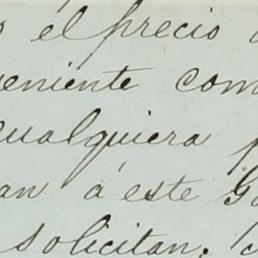 el precio
veniente com
cualquiera
an á este G
solicitan.